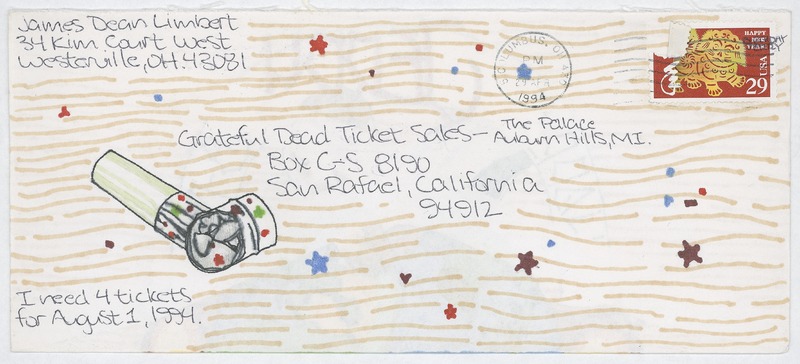 James Dean Limbert
34 Kim Court West
Westerville, OH 43081
COLUMBUS, OH
PM
1994
HAPPY
NEW
YEAR!
USA
29
Grateful Dead Ticket Sales— The Pallace
Auburn Hills, MI.
Box C-S 8190
San Rafael, California
94912
I need 4 tickets
for August 1, 1994.